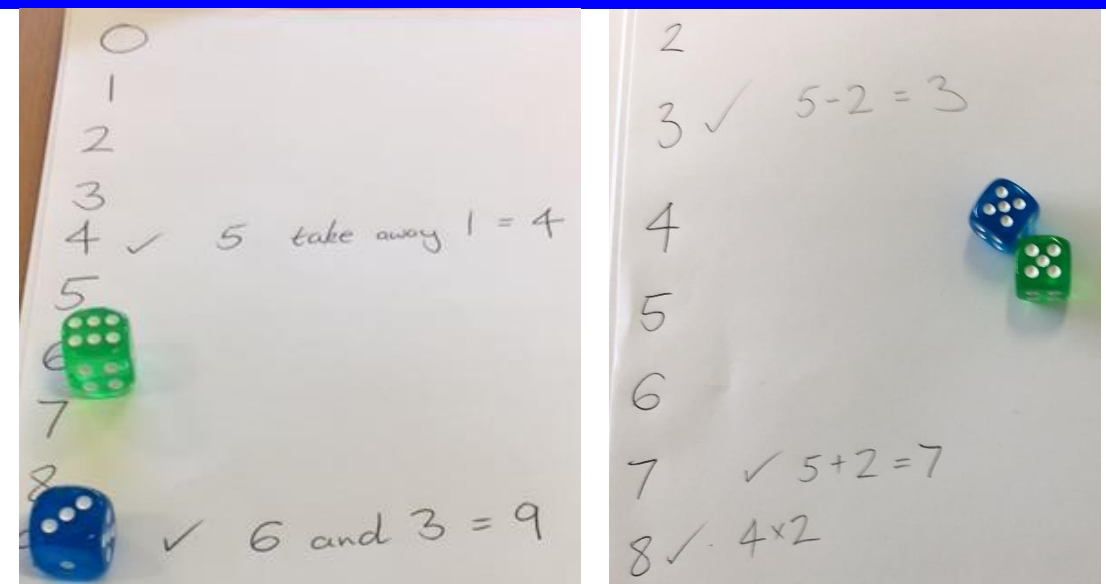 0
1
2
3
4 ✓ 5 take away 1 = 4
5
6
7
8
✓ 6 and 3 = 9
2
3 ✓ 5-2 = 3
4
5
6
7 ✓ 5+2=7
8 ✓ . 4×2